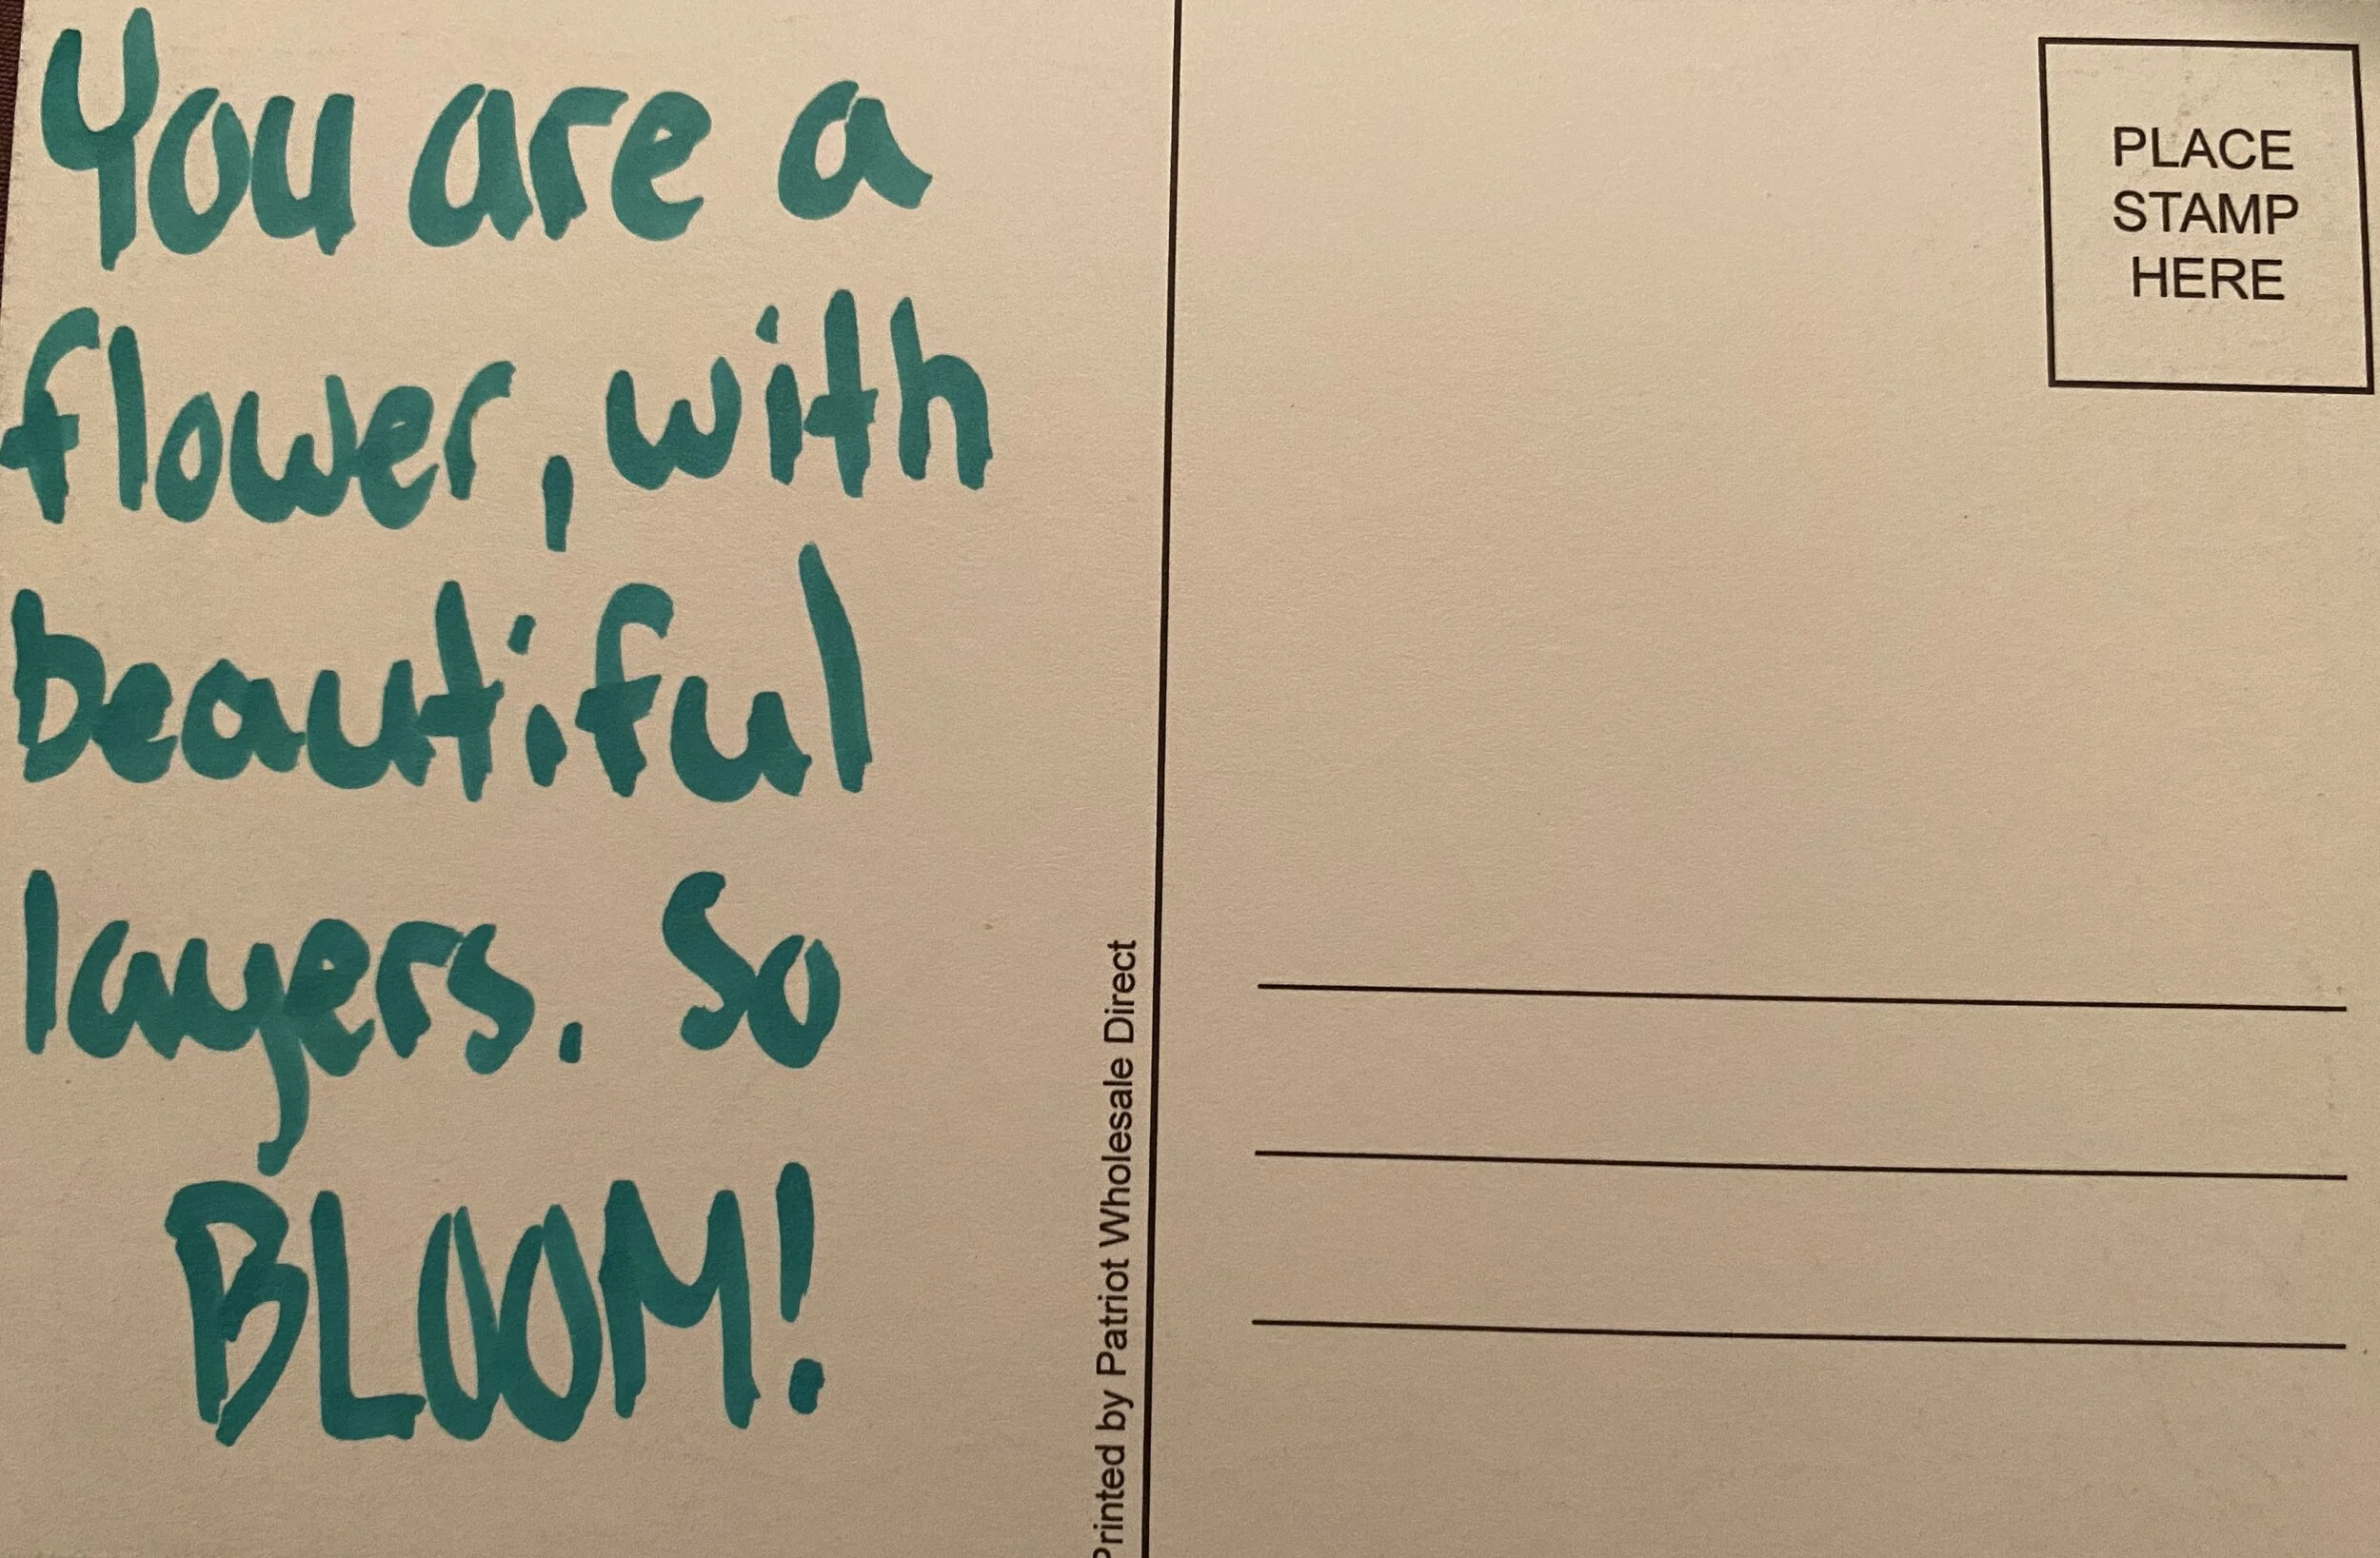 You are a
flower, with
beautiful
layers. So
BLOOM!
Printed by Patriot Wholesale Direct
PLACE
STAMP
HERE